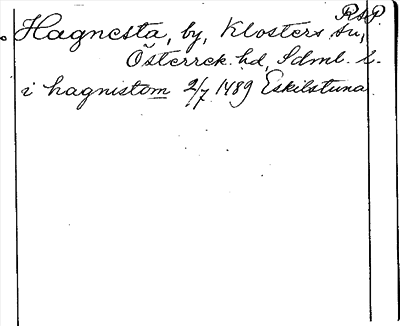 RSP
Hagnesta, by, Klosters sn,
Österrek. hd, Sdml. l.
i hagnistom 2/7 1489 Eskilstuna